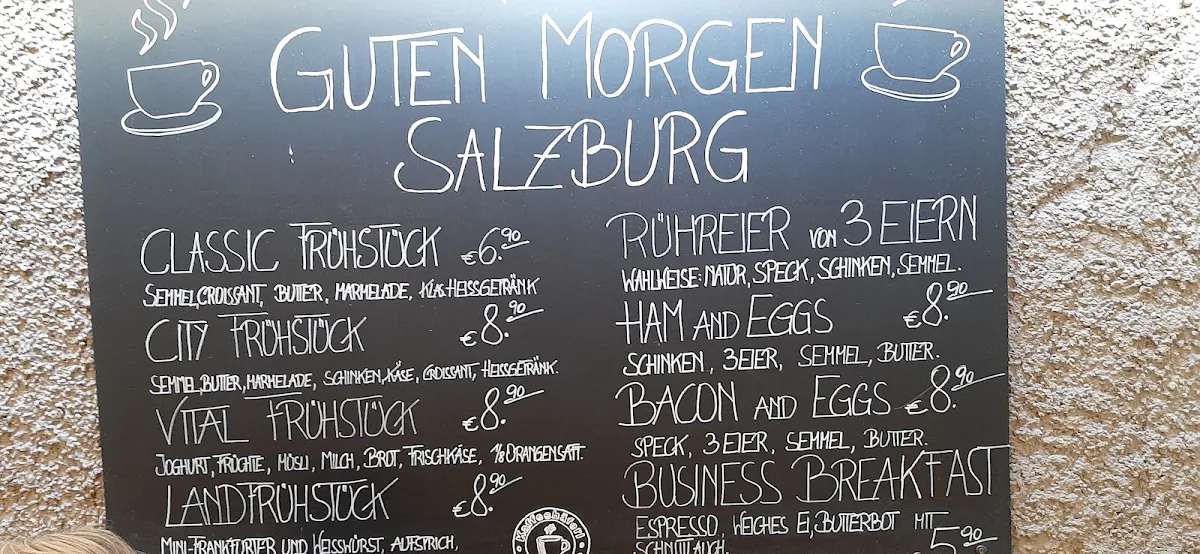 GUTEN MORGEN
SALZBURG
CLASSIC FRÜHSTÜCK €6.90
SEMMEL,CROISSANT, BUTTER, MARMELADE, HEISSGETRÄNK
CITY FRÜHSTÜCK €8.90
SEMMEL,BUTTER,MARMELADE, SCHINKEN,KÄSE, CROISSANT, HEISSGETRÄNK.
VITAL FRÜHSTÜCK €8.90
JOGHURT, FRÜCHTE, MÜSLI, MILCH, BROT, FRISCHKÄSE, 1/8 ORANGENSAFT.
LANDFRÜHSTÜCK €8.90
MINI-FRANKFURTER UND WEISSWÜRST, AUFSTRICH,
RÜHREIER VON 3 EIERN
WAHLWEISE: NATUR, SPECK, SCHINKEN, SEMMEL.
HAM AND EGGS €8.90
SCHINKEN, 3EIER, SEMMEL, BUTTER.
BACON AND EGGS €8.90
SPECK, 3EIER, SEMMEL, BUTTER.
BUSINESS BREAKFAST
ESPRESSO, WEICHES EI, BUTTERBOT MIT
SCHNITTLAUCH. €5.90
Kaffeehäferl